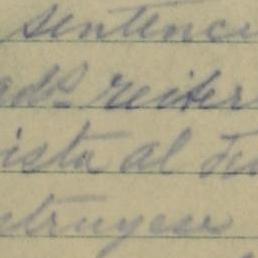 sentenci
ado reiter
ista al
truyese